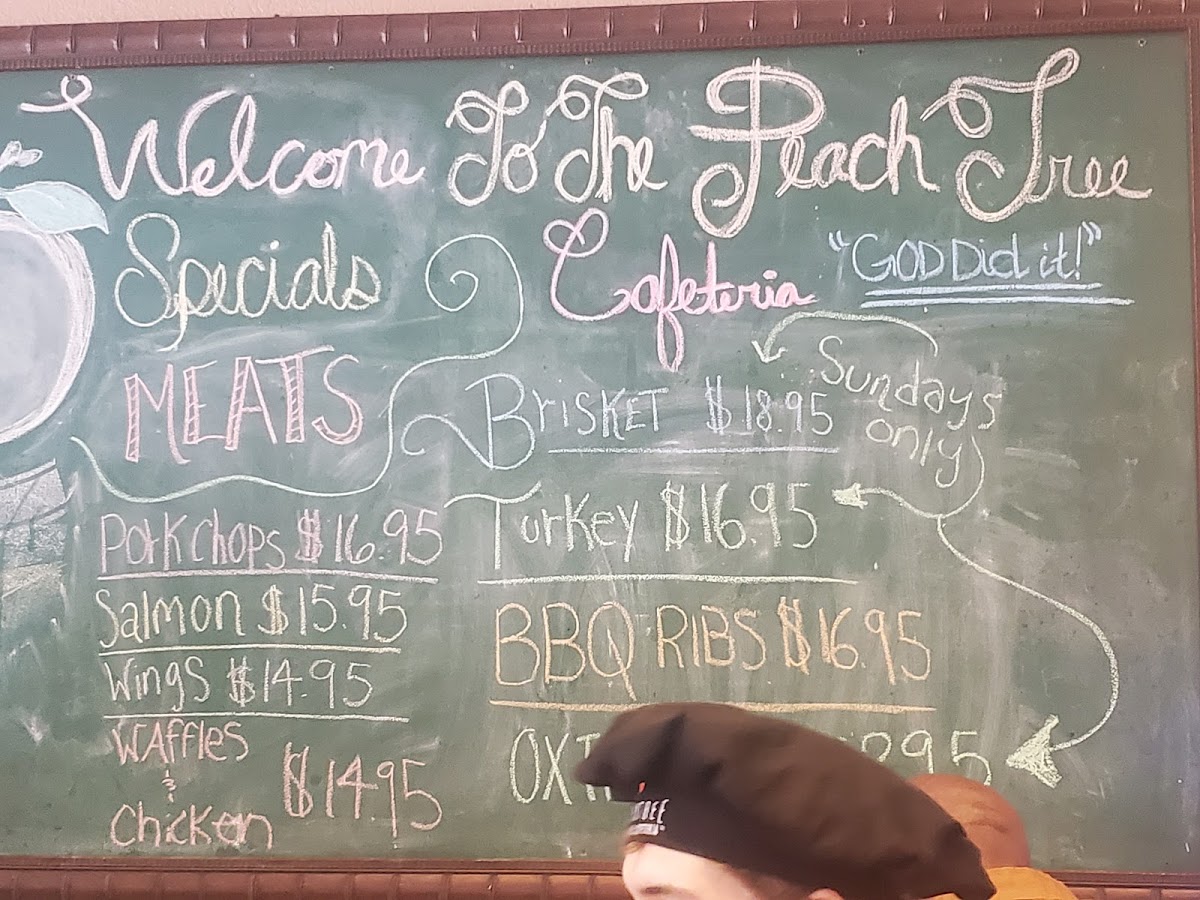 Welcome To The Peach Tree
Cafeteria
"GOD Did it!"
Specials
MEATS
Porkchops $16.95
Salmon $15.95
Wings $14.95
WAffles
&
Chicken
$14.95
BrisKET $18.95
Sundays
only
Turkey $16.95
BBQ RIBS $16.95